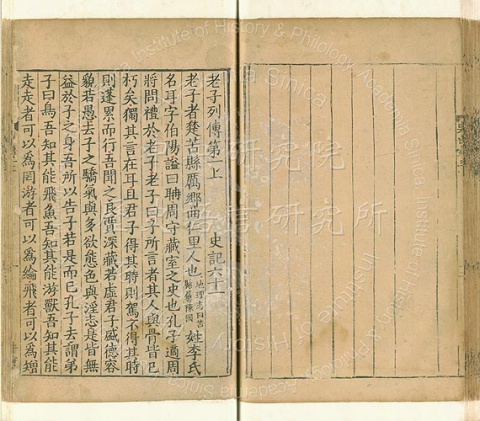 老子列傳第一上 史記六十一
老子者楚苦縣厲鄉曲仁里人也地理志曰苦縣屬陳國姓李氏
名耳字伯陽謚曰聃周守藏室之史也孔子適周
將問禮於老子老子曰子所言者其人與骨皆已
朽矣獨其言在耳且君子得其時則駕不得其時
則蓬累而行吾聞之良賈深藏若虛君子盛德容
貌若愚去子之驕氣與多欲態色與淫志是皆無
益於子之身吾所以告子若是而已孔子去謂弟
子曰鳥吾知其能飛魚吾知其能游獸吾知其能
走走者可以爲罔游者可以爲綸飛者可以爲矰
Institute of History & Philology, Academia Sinica
研究院
言研究所